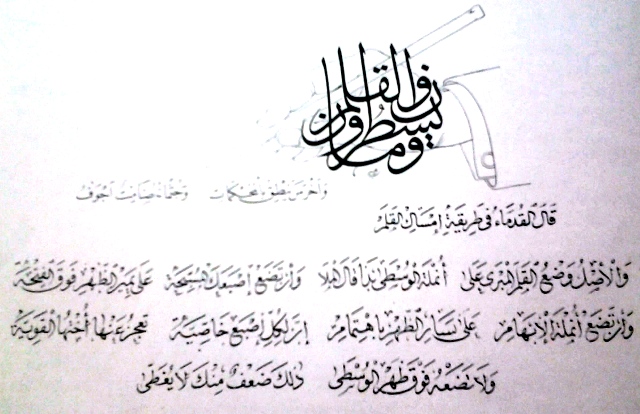 ن والقلم وما يسطرون
وأخرس ينطق بالمحكمات وجثمانه صامت أجوف
قال القدماء في طريقة إمساك القلم
والأصل وضع القلم المبري على أنملة الوسطى بدا قال الملا وأن تضع إصبعك المسبحة على يمين الظهر فوق الفتحة
وأن تضع أنملة الإبهام على يسار الظهر باهتمام إن لكل إصبع خاصية تعجز عنها أختها القوية
ولا تضعه فوق ظهر الوسطى ذلك ضعف منك لا يغطى